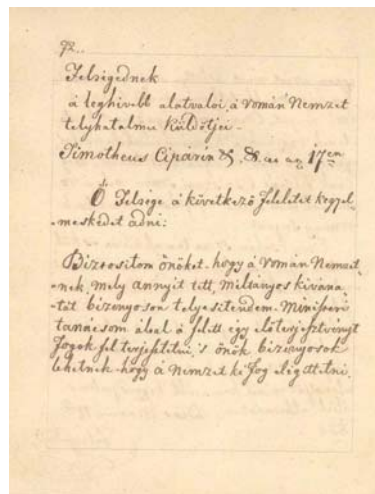 72.
Felségednek
a leghivebb alatvaloi, á Román Nemzet
telyhatalmu Küldötjei.
Timotheus Cipáriu &, &. az 17en
Ö Felsége á következö feleletet kegyel-
-meskedet adni:
Biztositom önöket, hogy á Román Nemzet-
-nek, mely annyit tett, miltányos kivana-
-tát bizonyoson telyesitendem. Ministeri
tannácsom által á felett egy elöterjesztvényt
fogok fel terjesztetni, 's önök bizonyosok
lehetnek, hogy á Nemzet ki fog elegittetni.